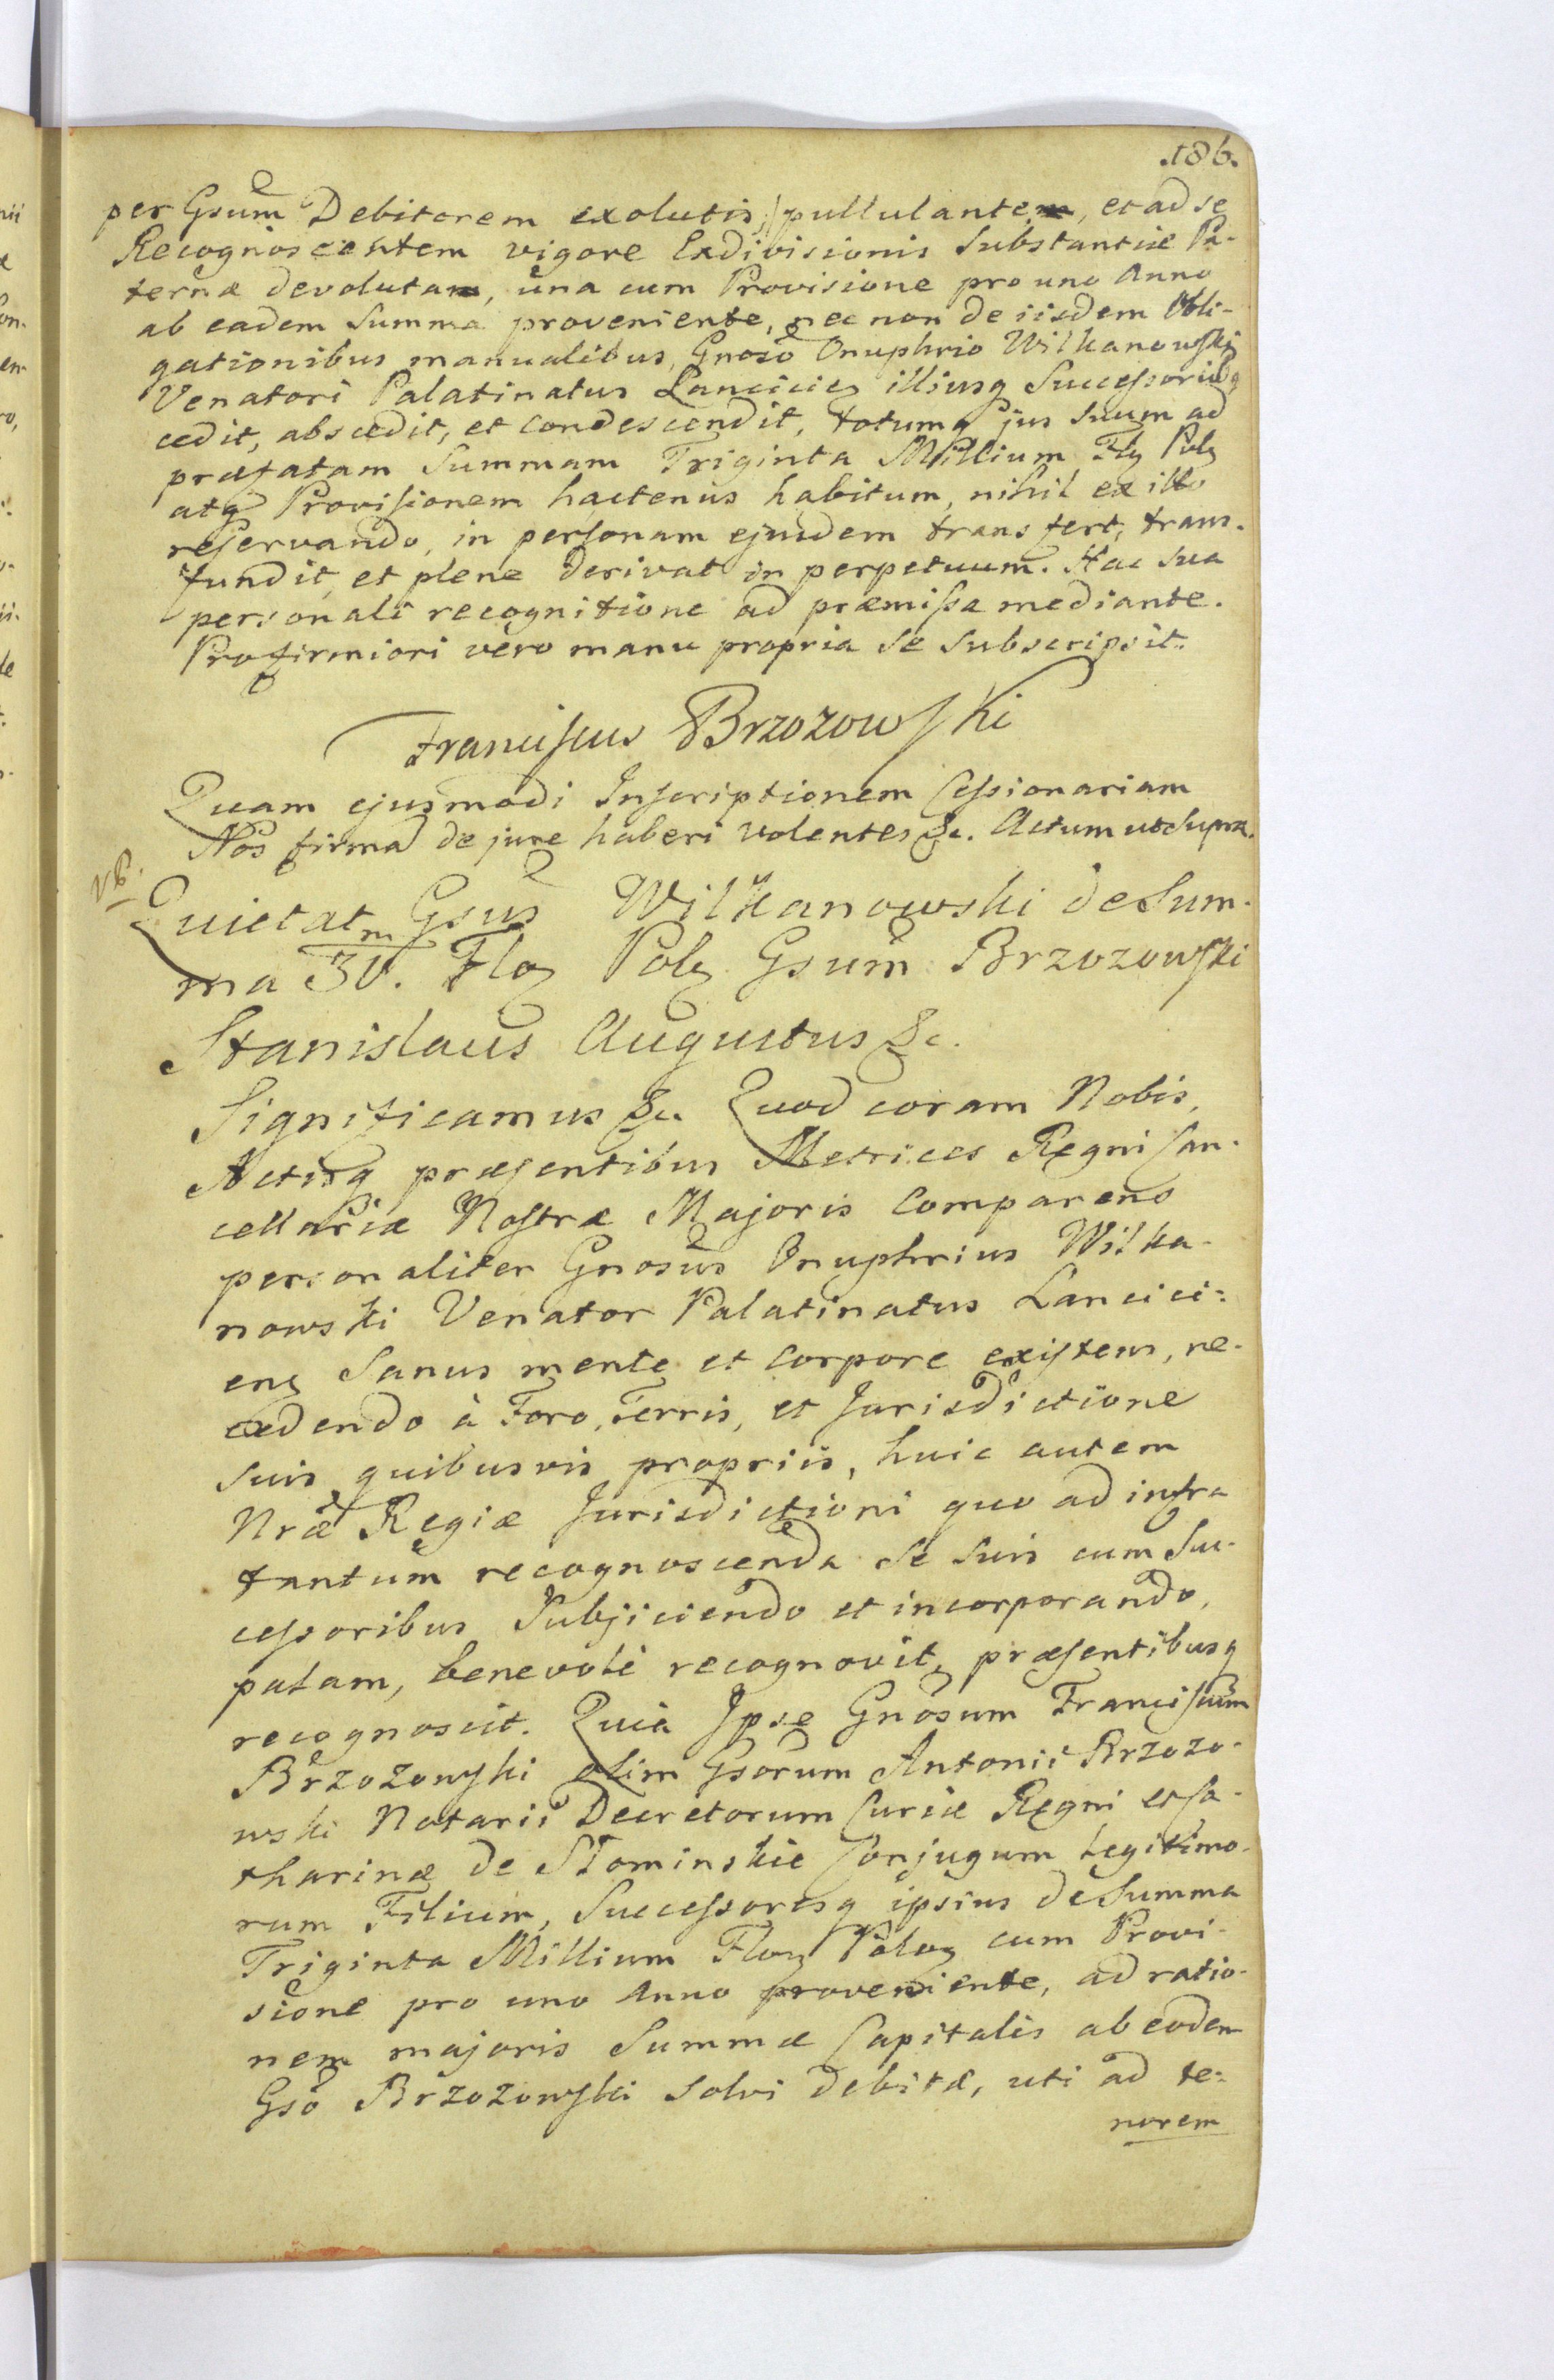 .186.
per Gsum Debitorem exolutis) pullulante, et ad se
Recognoscentem vigore Exdivisionis Substantiæ Pa-
ternæ devoluta, una cum Provisione pro uno Anno
ab eadem Summa proveniente, nec non de iisdem Obli-
gationibus manualibus, Gnoso Onuphrio Wilkanowski
Venatori Palatinatus Lancicien illiusq Successoribq
cedit, abscedit, et condescendit, totumq jus suum ad
præfatam Summam Triginta Millium Flg Polg
atq Provisionem hactenus habitum, nihil ex illo
reservando, in personam ejusdem transfert, trans-
fundit, et plene derivat in perpetuum. Hac sua
personali recognitione ad præmissa mediante.
Pro firmiori vero manu propria se subscripsit.
Franciscus Brzozowski
Quam ejusmodi Inscriptionem Cessionariam
Nos firma de jure haberi volentes &c. Actum ut supra.
Quietat Gsus Wilkanowski de Sum-
ma 30. m Flog Polg Gsum Brzozowski
Stanislaus Augustus &c.
Significamus &c. Quod coram Nobis,
Actisq præsentibus Metrices Regni Can-
cellariæ Nostræ Majoris Comparens
personaliter Gnosus Onuphrius Wilka-
nowski Venator Palatinatus Lancici=
eng Sanus mente et corpore existens, re-
cedendo à Foro, Terris, et Jurisdictione
suis quibusvis propriis, huic autem
Nræ Regiæ Jurisdictioni quo ad infra
tantum recognoscenda se suis cum Suc-
cessoribus Subjiciendo et incorporando,
palam, benevolè recognovit, præsentibusq
recognoscit. Quia Ipse Gnosum Franciscum
Brzozowski olim Gsorum Antonii Brzozo-
wski Notarii Decretorum Curiæ Regni et Ca-
tharinæ de Słominskie Conjugum legitimo-
rum Filium, Successoresq ipsius de Summa
Triginta Millium Flog Polog cum Provi-
sione pro uno Anno proveniente, ad ratio-
nem majoris Summæ Capitalis ab eodem
Gso Brzozowski solvi debitæ, uti ad te=
norem